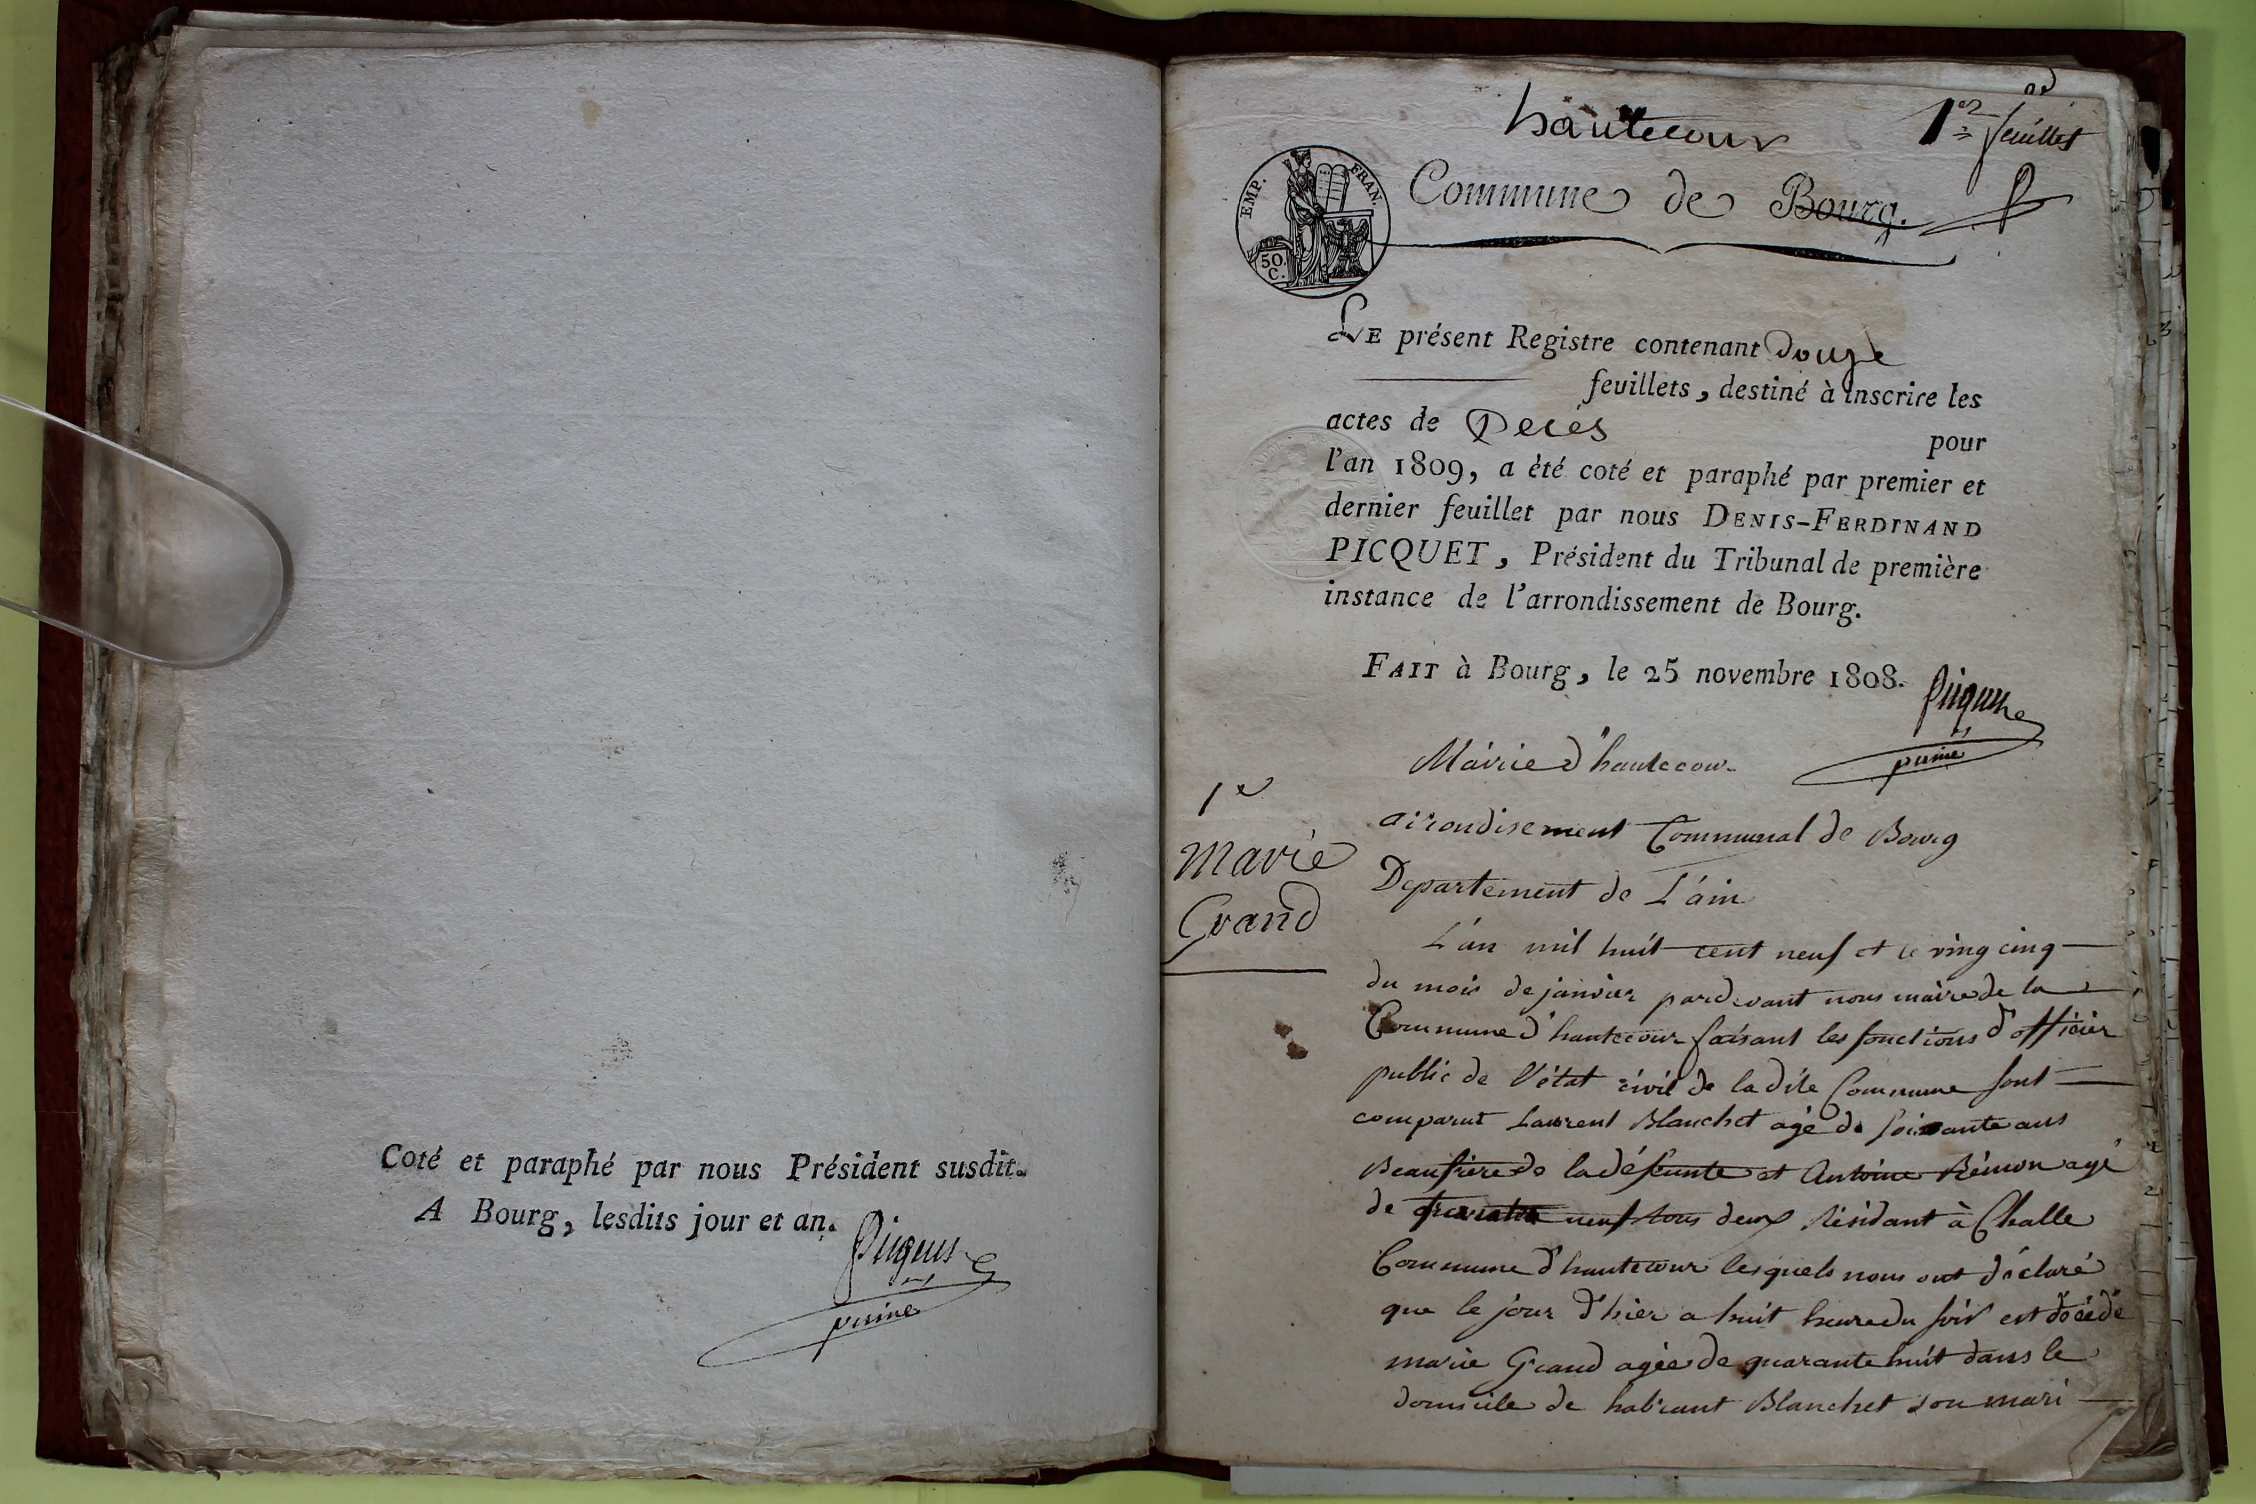 Coté et paraphé par nous Président susdit.
A Bourg, lesdits jour et an.
hautecour
1er feuillet
EMP. FRAN.
50.
C.
Commune de Bourg.
LE présent Registre contenant douze
feuillets, destiné à inscrire les
actes de Decés pour
l'an 1809, a été coté et paraphé par premier et
dernier feuillet par nous DENIS-FERDINAND
PICQUET, Président du Tribunal de première
instance de l'arrondissement de Bourg.
FAIT à Bourg, le 25 novembre 1808.
1e
Marie
Grand
Mairie d'hautecour
airondisement Communal de Bourg
Departement de L'ain
L'an mil huit cent neuf et le ving cinq
du mois de janvier pardevant nous maire de la
Commune d'hautecour faisant les fonctions d'officier
public de l'état civil de la dite Commune sont
comparut Laurent Blanchet agé de soixante ans
Beaufrère de la défunte et Antoine Rémon agé
de neuf tous deux résidant à Challe
Commune d'hautecour lesquels nous ont déclaré
que le jour d'hier a huit heure du soir est décédé
marie Grand agée de quarante huit dans le
domicile de Blanchet son mari